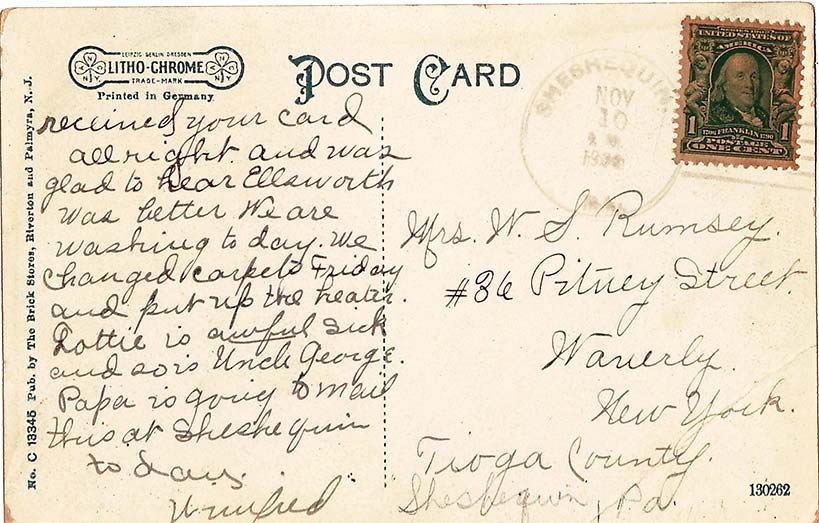 LEIPZIG BERLIN DRESDEN
LITHO-CHROME
TRADE-MARK
Printed in Germany
POST CARD
SHESHEQUIN
NOV
10
SERIES 1902
UNITED STATES OF
AMERICA
1 1706 FRANKLIN 1790 1
POSTAGE
ONE CENT
received your card
all right and was
glad to hear Ellsworth
was better We are
washing to day. We
changed carpets Friday
and put up the heater.
Lottie is awful sick
and so is Uncle George.
Papa is going to mail
this at Sheshequin
to day.
Winifred
Mrs. W. S. Rumsey.
#36 Pitney Street.
Waverly.
New York.
Tioga County.
Sheshequin, Pa.
130262
No. C 13345 Pub. by The Brick Stores, Riverton and Palmyra, N. J.